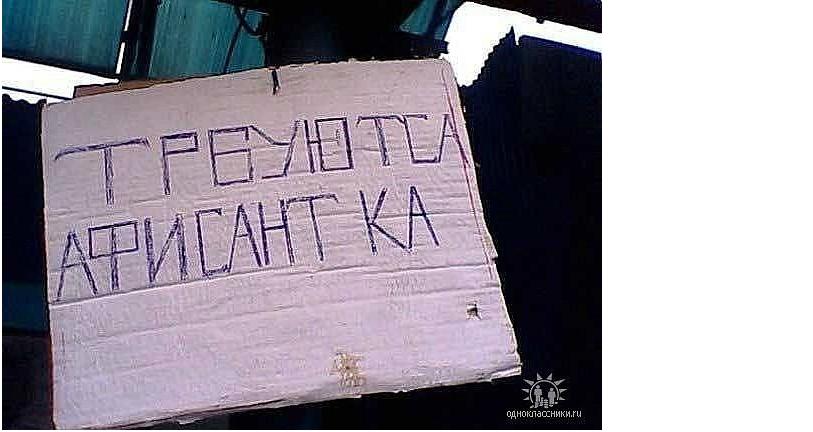 ТРБУЮТСА
АФИСАНТ КА
одноклассники.ru